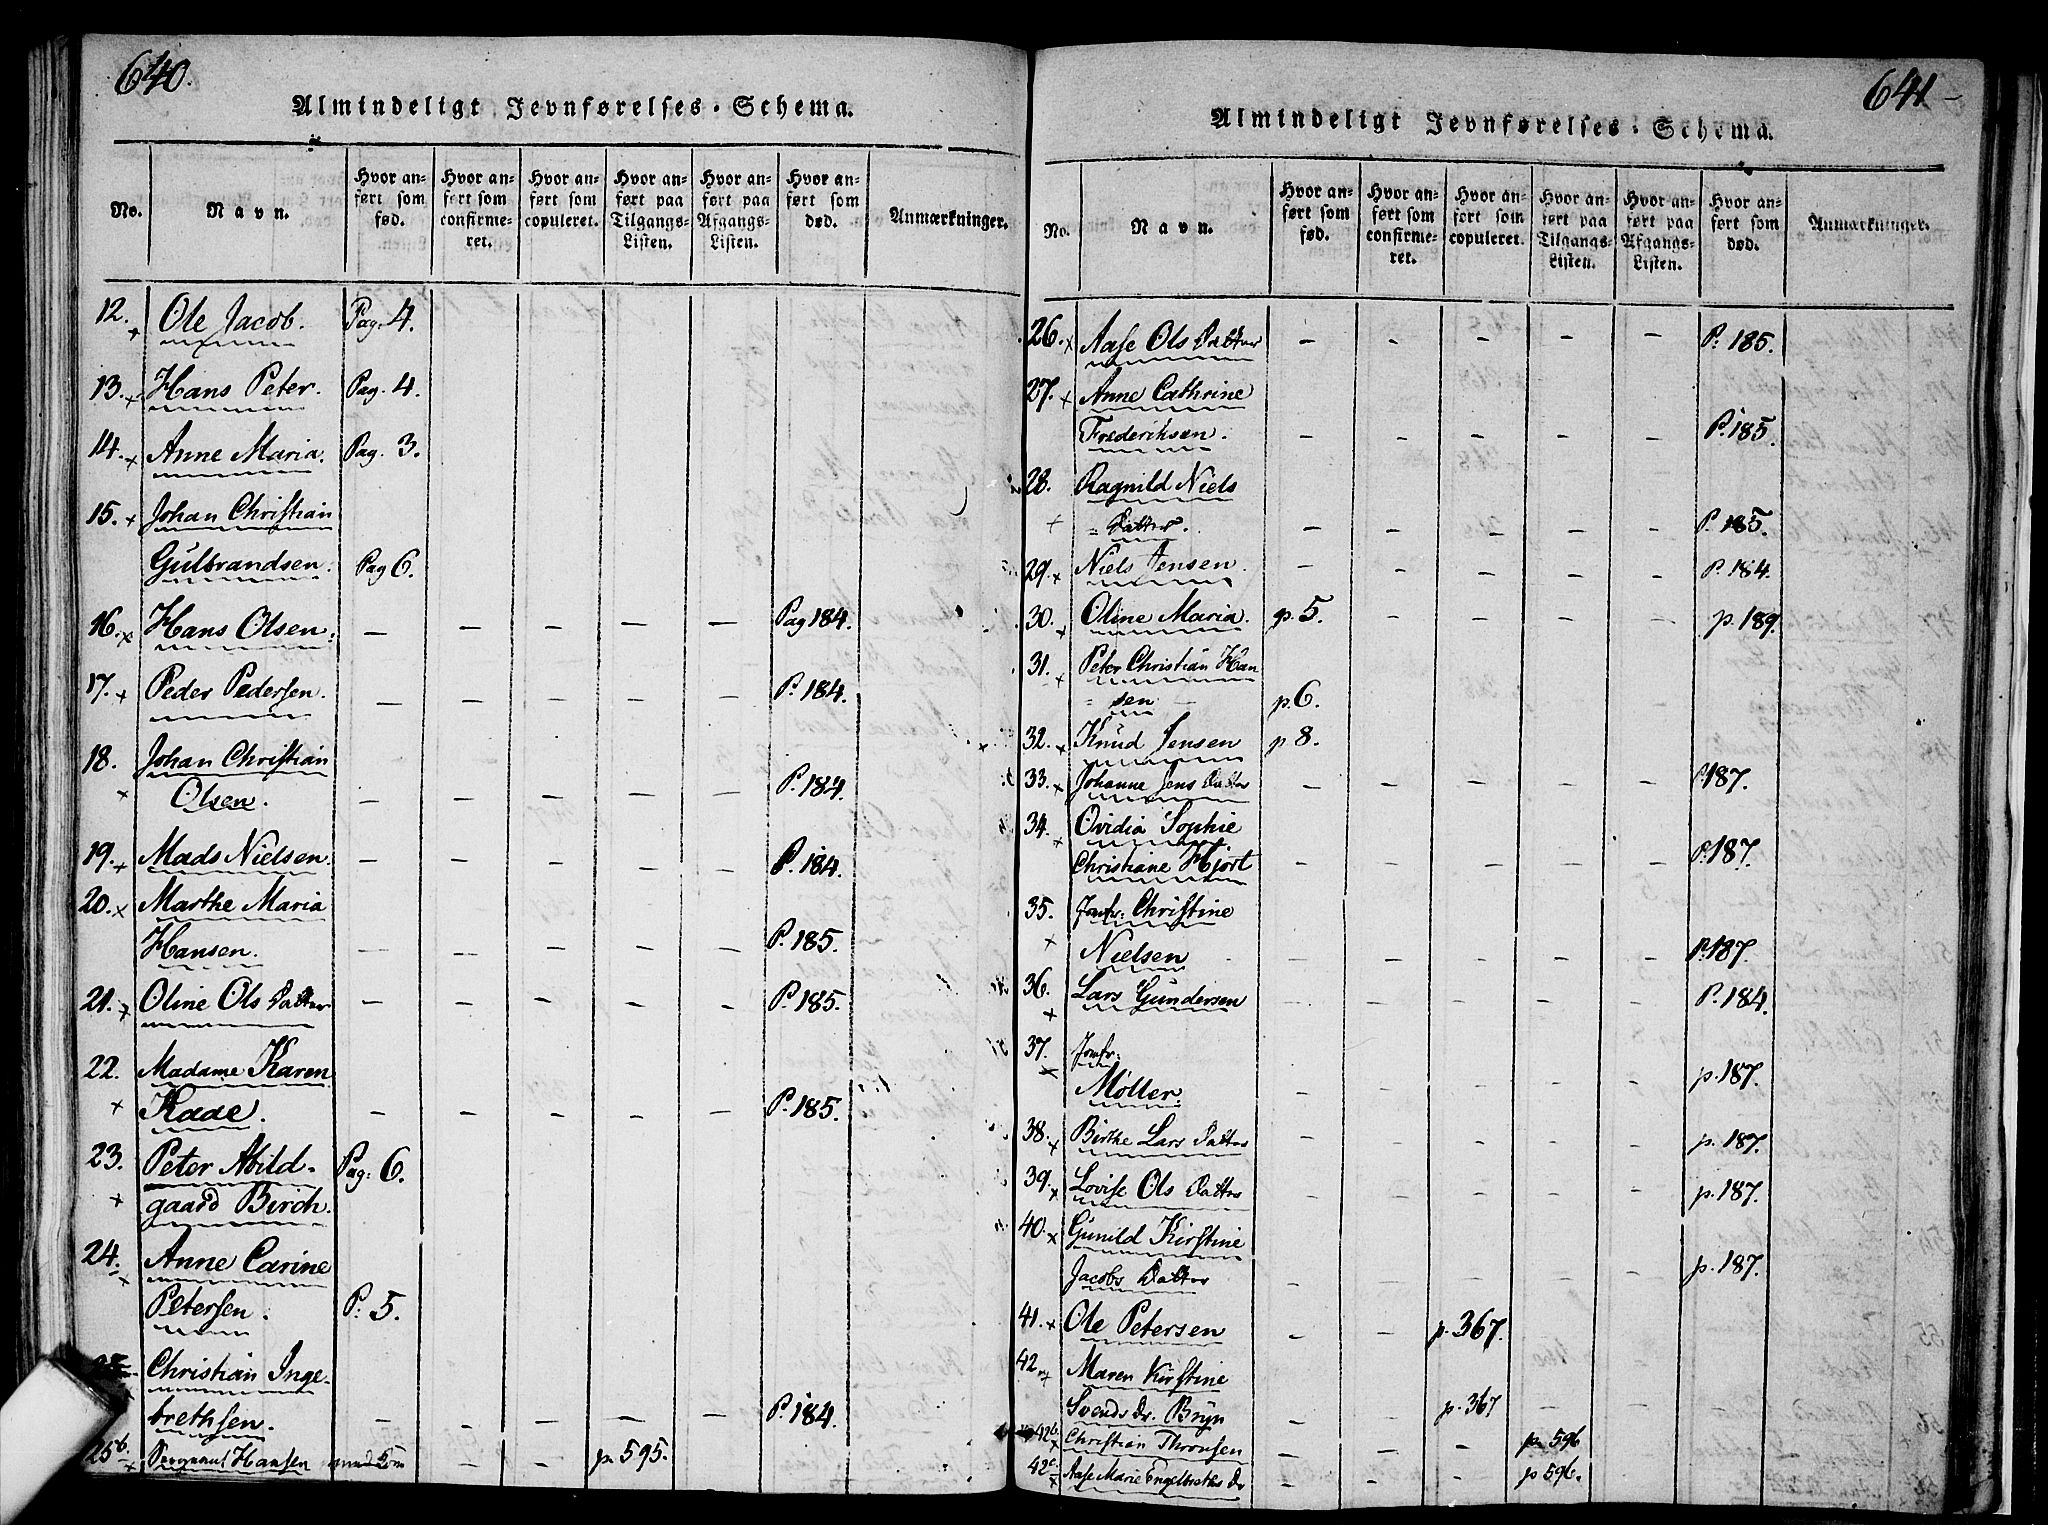 640.
Almindeligt Jevnførelses-Schema.
No.
Navn.
Hvor anført som fød.
Hvor anført som confirmeret.
Hvor anført som copuleret.
Hvor anført paa Tilgangs-Listen.
Hvor anført paa Afgangs-Listen.
Hvor anført som død.
Anmærkninger.
12. + Ole Jacob. Pag. 4.
13. + Hans Peter. Pag. 4.
14. + Anne Maria. Pag. 3.
15. + Johan Christian
Gulbrandsen. Pag 6.
16. + Hans Olsen. — — — — — Pag 184.
17. + Peder Pedersen. — — — — — P. 184.
18. Johan Christian
+ Olsen. — — — — — P. 184.
19. + Mads Nielsen. — — — — — P. 184.
20. + Marthe Maria
Hansen. — — — — — P. 185.
21. + Oline Ols Datter — — — — — P. 185.
22. Madame Karen
+ Kaae. — — — — — P. 185.
23. Peter Abild- Pag: 6.
+ gaard Birch.
24. + Anne Carine
Petersen. P. 5.
25. Christian Inge-
brethsen. — — — — — P. 184.
25b. + Hansen — — p. 595.
641
Almindeligt Jevnførelses-Schema.
No.
Navn.
Hvor anført som fød.
Hvor anført som confirmeret.
Hvor anført som copuleret.
Hvor anført paa Tilgangs-Listen.
Hvor anført paa Afgangs-Listen.
Hvor anført som død.
Anmærkninger.
26. + Aase Ols Datter — — — — — P. 185.
27. + Anne Cathrine
Frederiksen. — — — — — P. 185.
28. Ragnild Niels
+ = Datter. — — — — — P. 185.
29. + Niels Jensen. — — — — — P. 184.
30. + Oline Maria. p. 5. — — — — p. 189.
31. + Peter Christian Han
= sen — p. 6.
32. + Knud Jensen p 8.
33. + Johanne Jens Datter — — — — — P. 187.
34. + Ovidia Sophie
Christiane Hjort — — — — — P. 187.
35. Jomfr: Christine
+ Nielsen — — — — — P. 187.
36. + Lars Gundersen — — — — — P. 184.
37. + Jomfr:
Møller. — — — — — p. 187.
38. + Birthe Lars Datter — — — — — p. 187.
39. + Lovise Ols Datter — — — — — p. 187.
40. + Gunild Kirstine
Jacobs Datter — — — — — p. 187.
41. + Ole Petersen — — p. 367.
42. + Maren Kirstine
Svends Dr. Bryn — — p. 367 — — —
42b. + Christian Thronsen — — — p. 596
42c. + Aase Marie Engelbreths Dr — — — p 596.